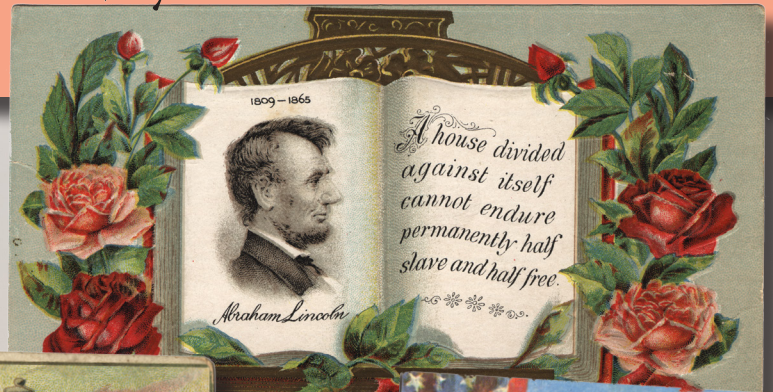 1809 – 1865
Abraham Lincoln
A house divided
against itself
cannot endure
permanently half
slave and half free.